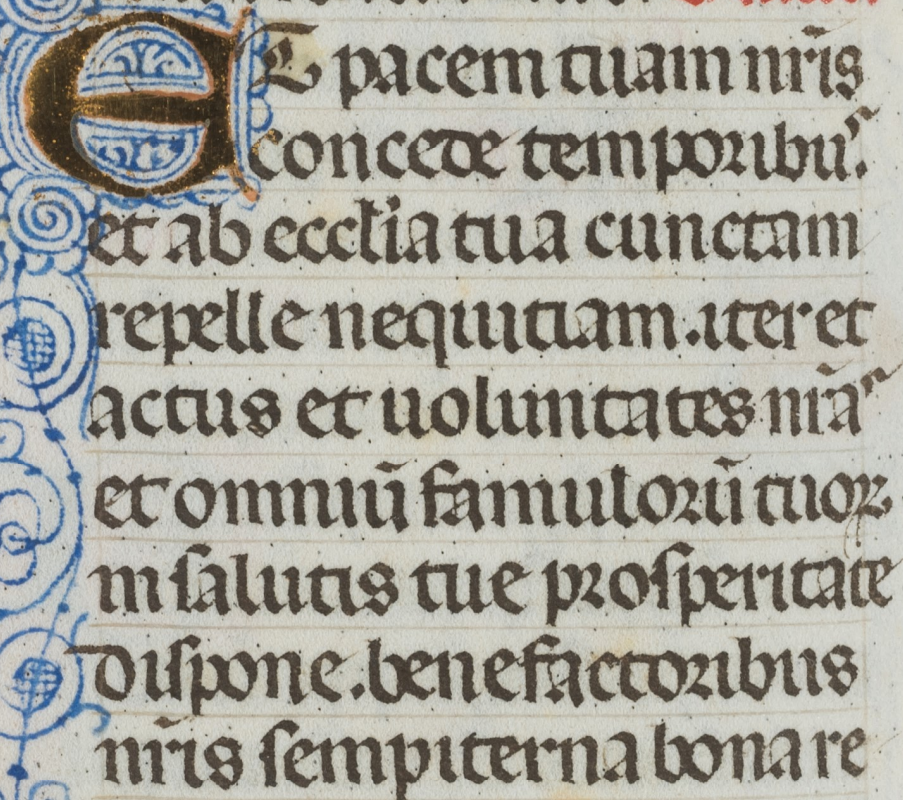 ET pacem tuam nr̃is
concede temporibus.
et ab eccl̃ia tua cunctam
repelle nequitiam. iter et
actus et uoluntates nr̃as
et omniũ famulorũ tuoꝝ
in salutis tue prosperitate
dispone. benefactoribus
nr̃is sempiterna bona re